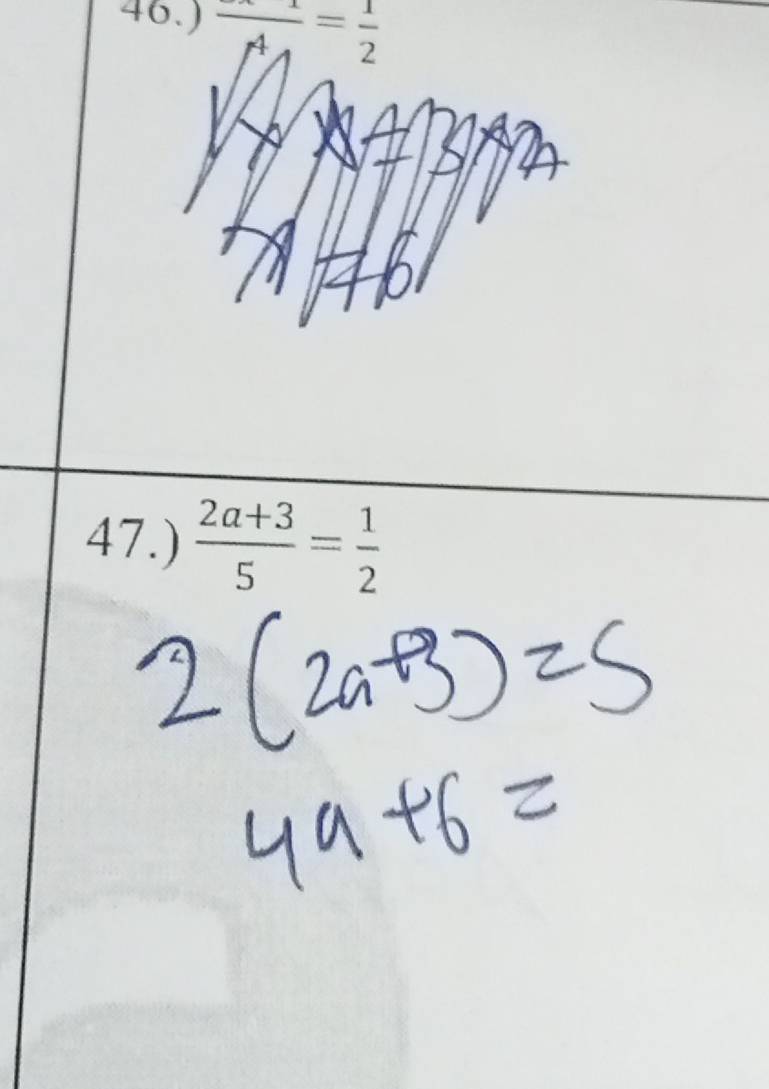 46.) 4 = 1/2
x = 6
47.) (2a+3)/5 = 1/2
2(2a+3)=5
4a+6=